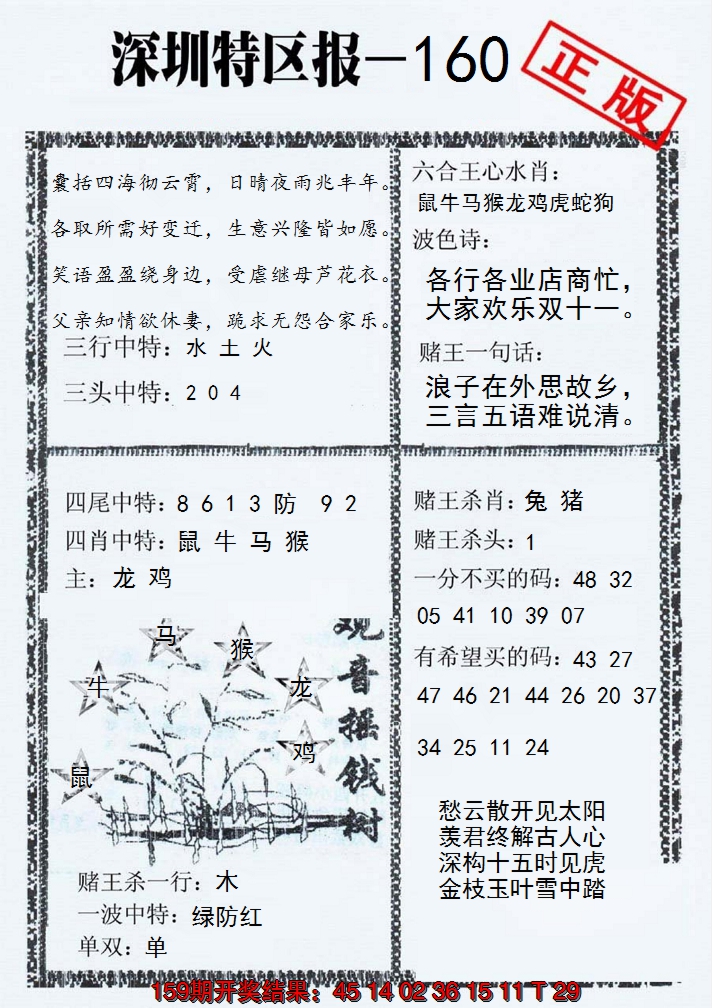 深圳特区报－160
正版
囊括四海彻云霄，日晴夜雨兆丰年。
各取所需好变迁，生意兴隆皆如愿。
笑语盈盈绕身边，受虐继母芦花衣。
父亲知情欲休妻，跪求无怨合家乐。
三行中特：水 土 火
三头中特：2 0 4
六合王心水肖：
鼠牛马猴龙鸡虎蛇狗
波色诗：
各行各业店商忙，
大家欢乐双十一。
赌王一句话：
浪子在外思故乡，
三言五语难说清。
四尾中特：8 6 1 3 防 9 2
四肖中特：鼠 牛 马 猴
主：龙 鸡
马
猴
牛
龙
鸡
鼠
观音摇钱树
赌王杀一行：木
一波中特：绿防红
单双：单
赌王杀肖：兔 猪
赌王杀头：1
一分不买的码：48 32
05 41 10 39 07
有希望买的码：43 27
47 46 21 44 26 20 37
34 25 11 24
愁云散开见太阳
羡君终解古人心
深构十五时见虎
金枝玉叶雪中踏
159期开奖结果：45 14 02 36 15 11 T 29